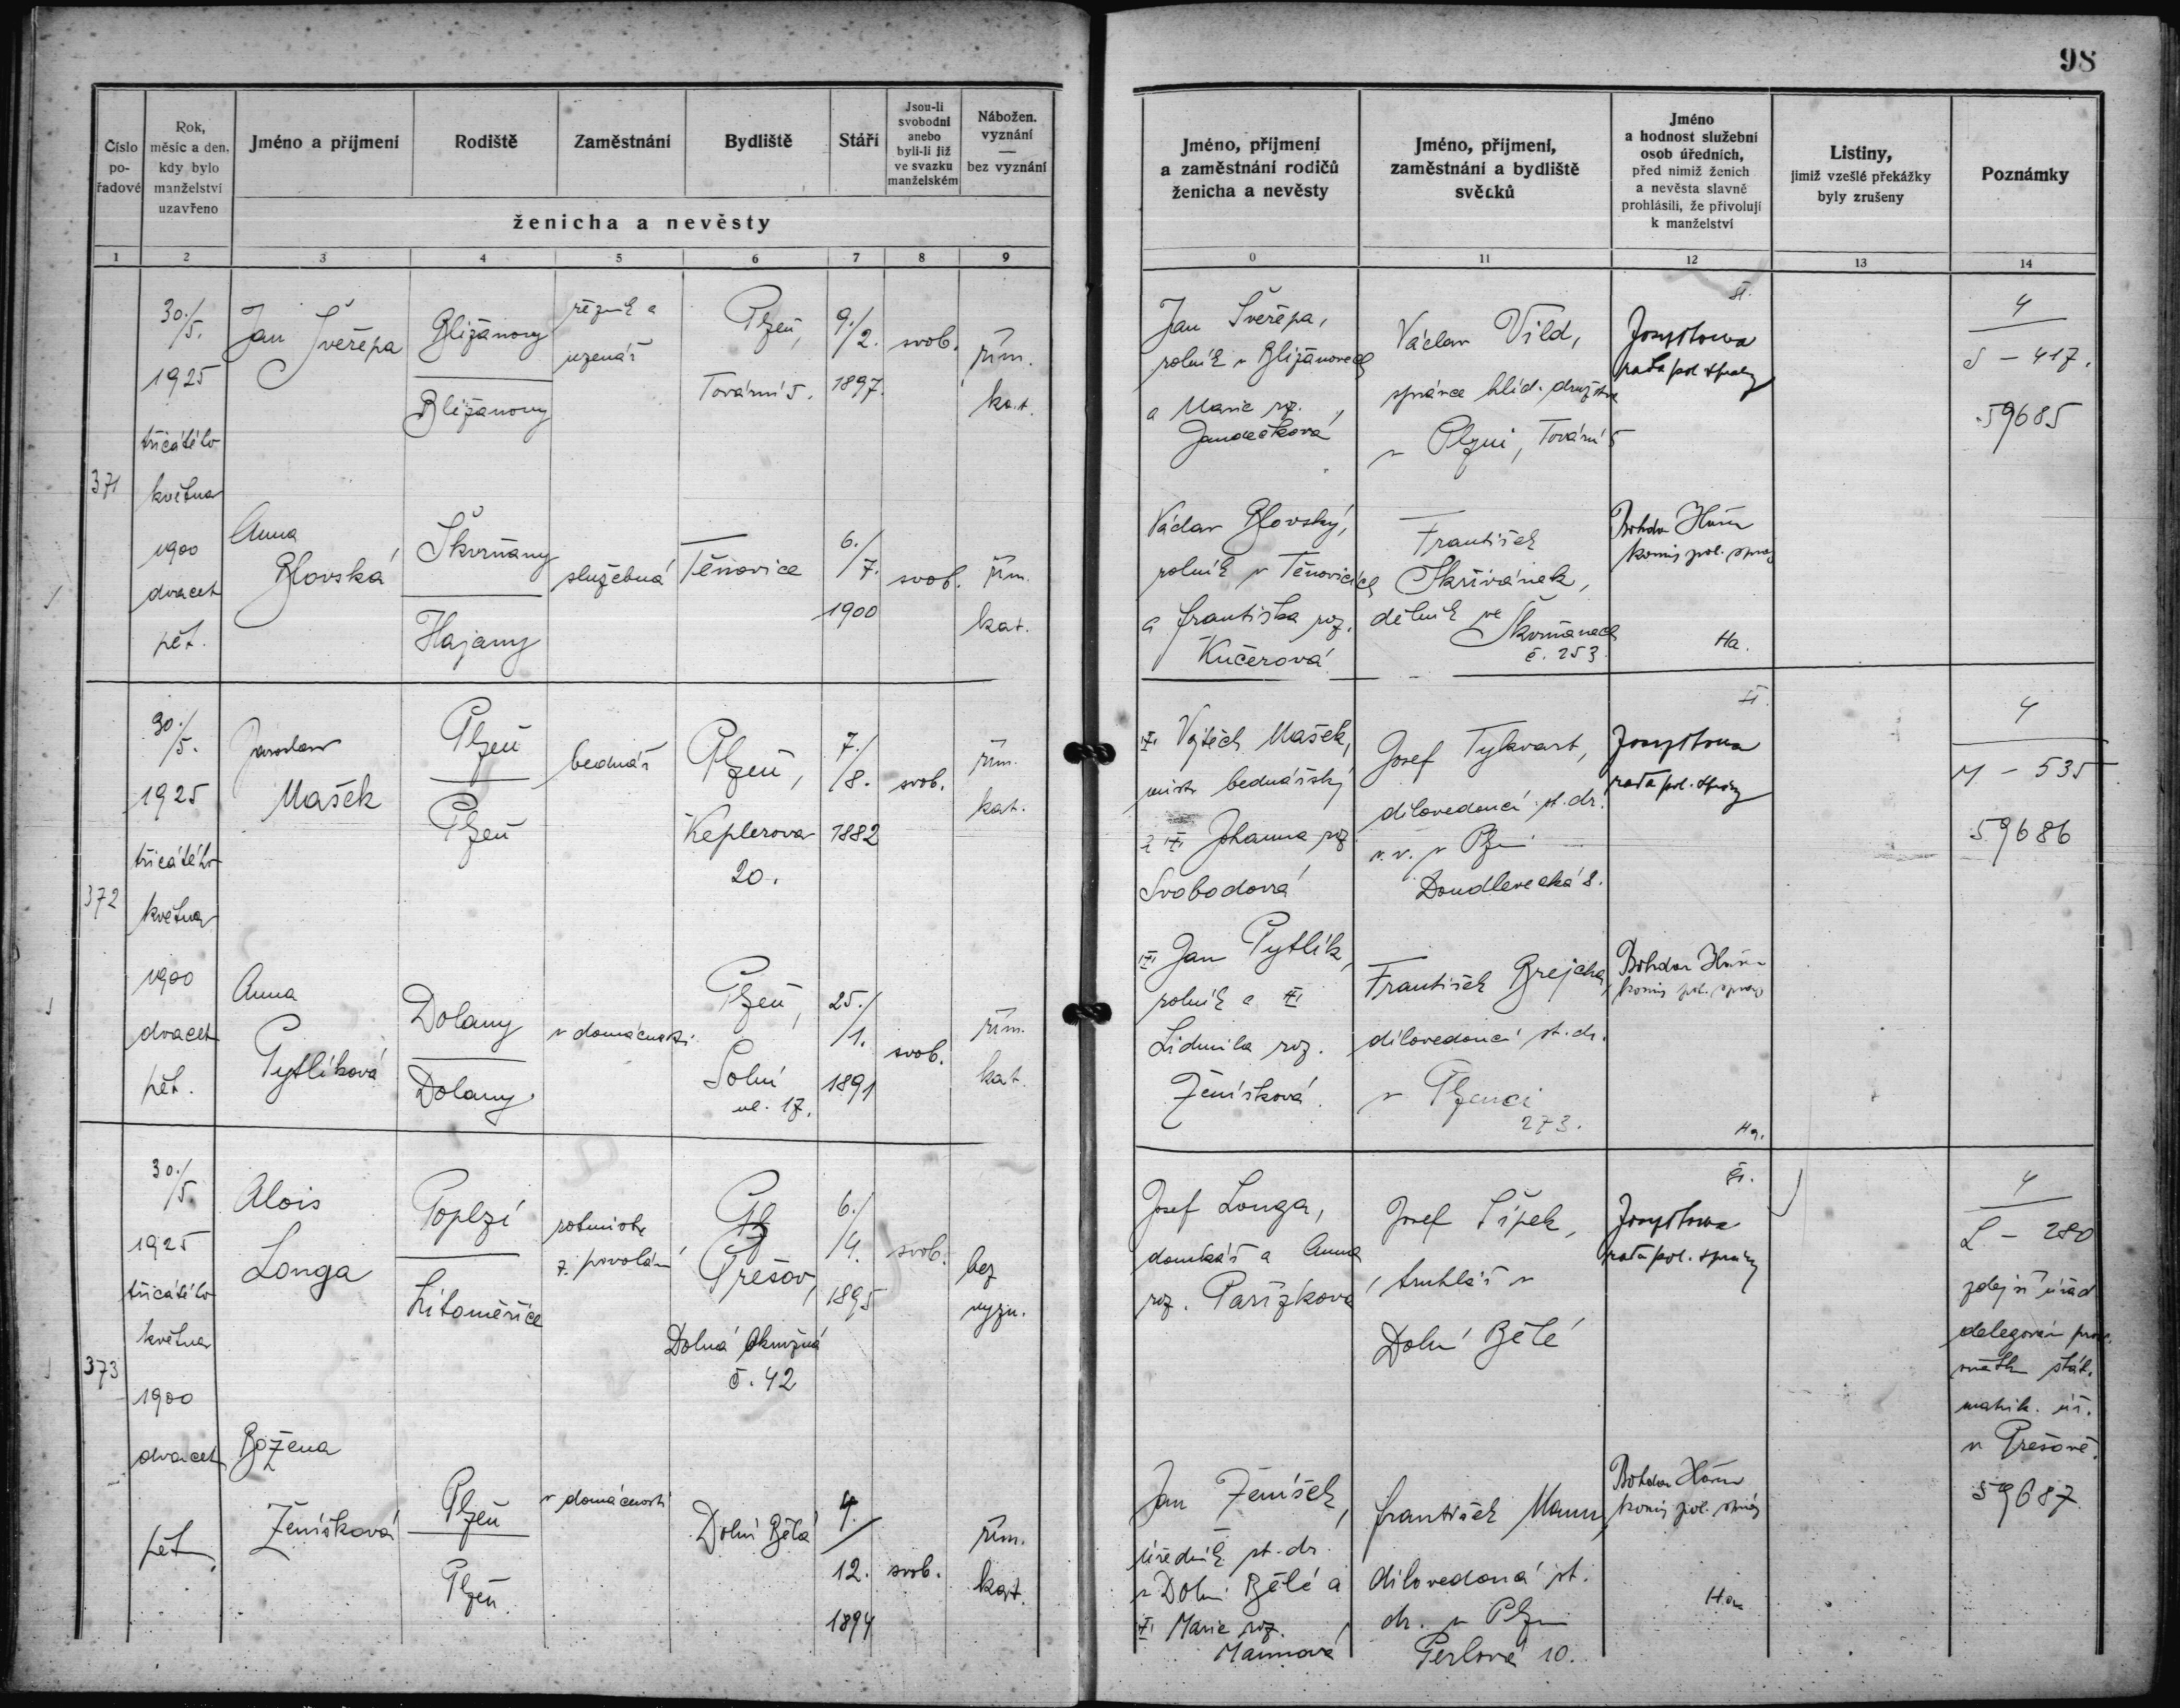 98
Číslo po- řadové
Rok, měsíc a den, kdy bylo manželství uzavřeno
Jméno a příjmení
Rodiště
Zaměstnání
Bydliště
Stáří
Jsou-li svobodni anebo byli-li již ve svazku manželském
Nábožen. vyznání — bez vyznání
ženicha a nevěsty
1 2 3 4 5 6 7 8 9
Jméno, příjmení a zaměstnání rodičů ženicha a nevěsty
Jméno, příjmení, zaměstnání a bydliště svědků
Jméno a hodnost služební osob úředních, před nimiž ženich a nevěsta slavně prohlásili, že přivolují k manželství
Listiny, jimiž vzešlé překážky byly zrušeny
Poznámky
0 11 12 13 14
371
30./5.
1925
třicátého
května
1900
dvacet
pět.
Jan Švěřepa
Bližanovy
Bližanovy
řezník a
uzenář
Plzeň,
Tovární 5.
9./2.
1897.
svob.
řím.
kat.
Jan Švěřepa,
rolník v Bližanovech
a Marie roz.
Jandečková
Václav Vild,
správce hlíd. družstva
v Plzni, Tovární 5
rada pol. správy
4
S – 417.
59685
Anna
Blovská
Škvrňany
Hajany
služebná
Těnovice
6./7.
1900
svob.
řím.
kat.
Václav Blovský,
rolník v Těnovicích
a Františka roz.
Kučerová
František
Skřivánek,
dělník ve
Škvrňanech
č. 253.
Bohdan
komis. pol. správy
Ha.
372
30./5.
1925
třicátého
května
1900
dvacet
pět.
Jaroslav
Mašek
Plzeň
Plzeň
bednář
Plzeň,
Keplerova
20.
7./8.
1882
svob.
řím.
kat.
Vojtěch Mašek,
mistr bednářský
a Johanna roz.
Svobodová
Josef Tykvart,
dílovedoucí st. dr.
v. v. v Plzni
Doudlevecká 8.
rada pol. správy
4
M – 535
59686
Anna
Pytlíková
Dolany
Dolany
v domácnosti
Plzeň,
Solní
ul. 17.
25./1.
1891
svob.
řím.
kat.
Jan Pytlík,
rolník a
Lidmila roz.
Ženíšková.
František Brejcha,
dílovedoucí st. dr.
v Plzenci
273.
Bohdan
komis. pol. správy
Ha.
373
30./5.
1925
třicátého
května
1900
dvacet
pět.
Alois
Longa
Poplzí
Litoměřice
rotmistr
z povolání
Prešov,
Dolná Okružná
č. 42
6./4.
1895
svob.
bez
vyzn.
Josef Longa,
domkář a Anna
roz. Pařízková
Josef Šípek,
truhlář v
Dolní Bělé
rada pol. správy
4
L – 280
zdejší úřad
delegován
stát.
matrik. úř.
v Prešově.
59687
Božena
Ženíšková
Plzeň
Plzeň.
v domácnosti
Dolní Bělá
4./
12.
1894
svob.
řím.
kat.
Jan Ženíšek,
úředník st. dr.
v Dolní Bělé a
Marie roz.
Mannová
František Mann,
dílovedoucí st.
dr. v Plzni
Perlová 10.
Bohdan
komis. pol. správy
Ha